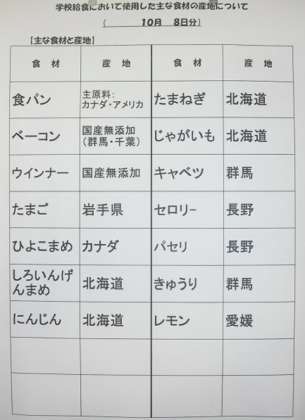 学校給食において使用した主な食材の産地について
( 10月 8日分)
【主な食材と産地】
食 材 産 地 食 材 産 地
食パン 主原料：カナダ・アメリカ たまねぎ 北海道
ベーコン 国産無添加（群馬・千葉） じゃがいも 北海道
ウインナー 国産無添加 キャベツ 群馬
たまご 岩手県 セロリー 長野
ひよこまめ カナダ パセリ 長野
しろいんげんまめ 北海道 きゅうり 群馬
にんじん 北海道 レモン 愛媛